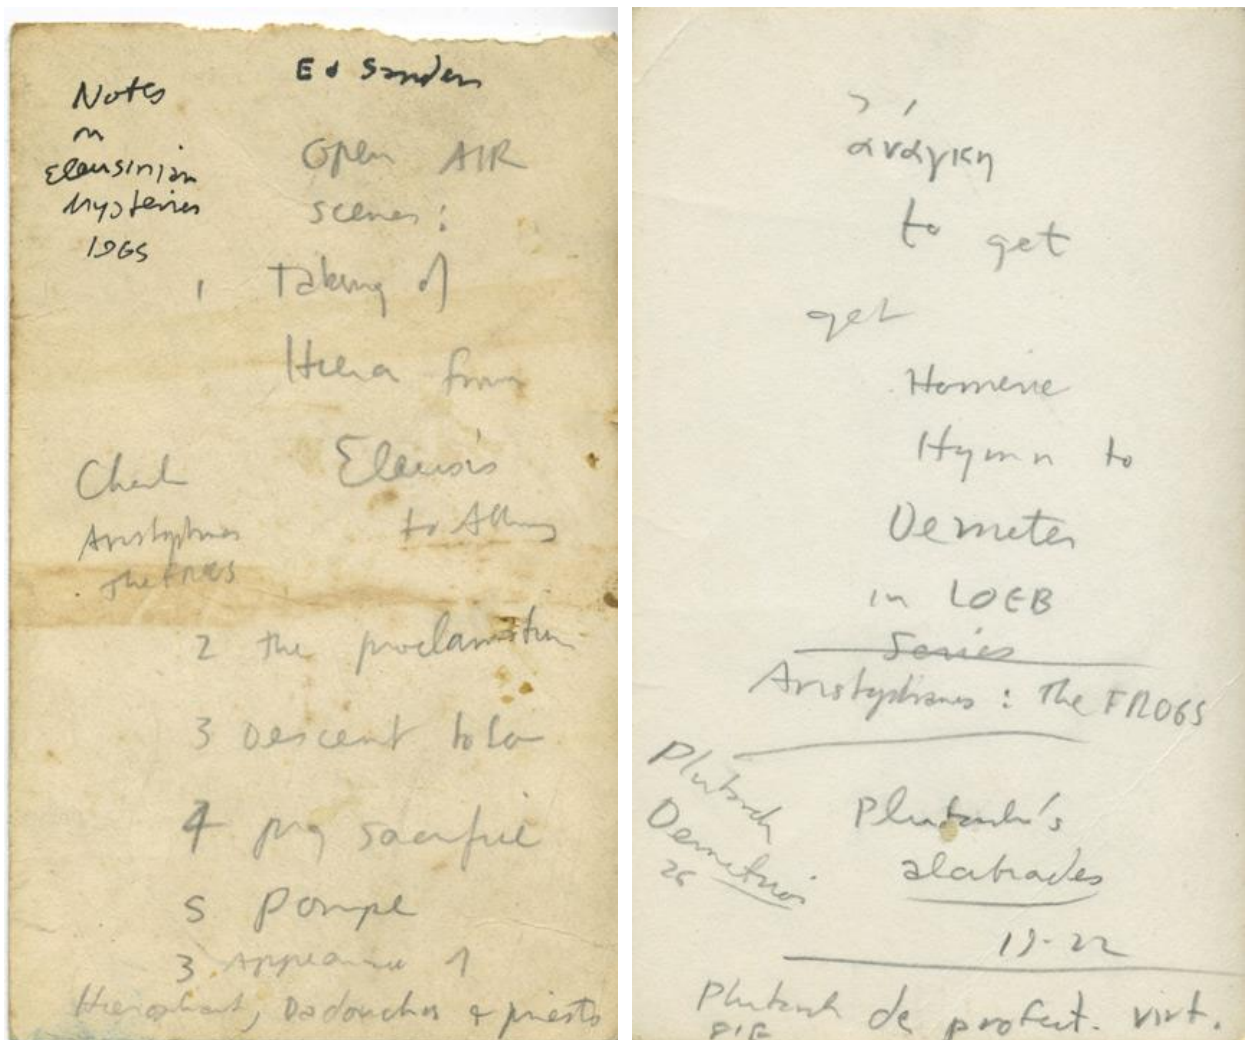 Ed Sanders
Notes
on
Eleusinian
Mysteries
1965
Open AIR
scenes:
1 Taking of
Hiera from
Eleusis
to Athens
Check
Aristophanes
The FROGS
2 the proclamation
3 Descent to
4 pig sacrifice
5 Pompe
3 Appearance of
Hierophant, Dadouchos + priests
ἀνάγκη
to get
get
Homeric
Hymn to
Demeter
in LOEB
Series
Aristophanes : The FROGS
Plutarch
Demetrios
26
Plutarch's
alcibiades
19-22
Plutarch de profect. virt.